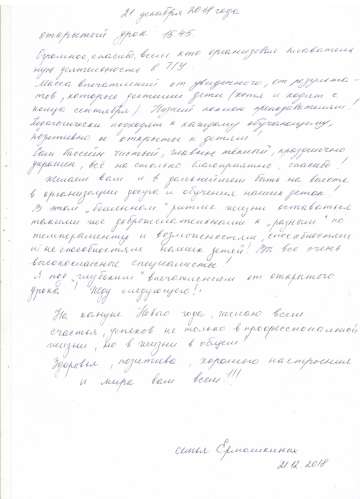 21 декабря 2018 года
открытый урок 15:45
Огромное спасибо всем, кто организовал плавательную деятельность в
Масса впечатлений от увиденного, от результатов, которых достигли дети (хотя и ходят с
конца сентября) Низкий поклон преподавателям!
Педагогически подходят к каждому обучающему,
позитивно и открыто к детям!
Сам бассейн чистый, главное тёплый, празднично
украшен, всё на столько благоприятно, спасибо!
Желаем вам и в дальнейшем быть на высоте
в организации досуга и обучения наших деток!
В этом "бешенном" ритме жизни оставаться
такими же доброжелательными к "разным" по
темпераменту и возможностям, способностям
и неспособностям наших детей! Вы все очень
высококлассные специалисты!
Я под "глубоким" впечатлением от открытого
урока! Жду следующего!
На кануне Нового года, желаю всем
счастья, успехов не только в профессиональной
жизни, но в жизни в общем
Здоровья, позитива, хорошего настроения
и мира вам всем!!!
семья
21.12.2018